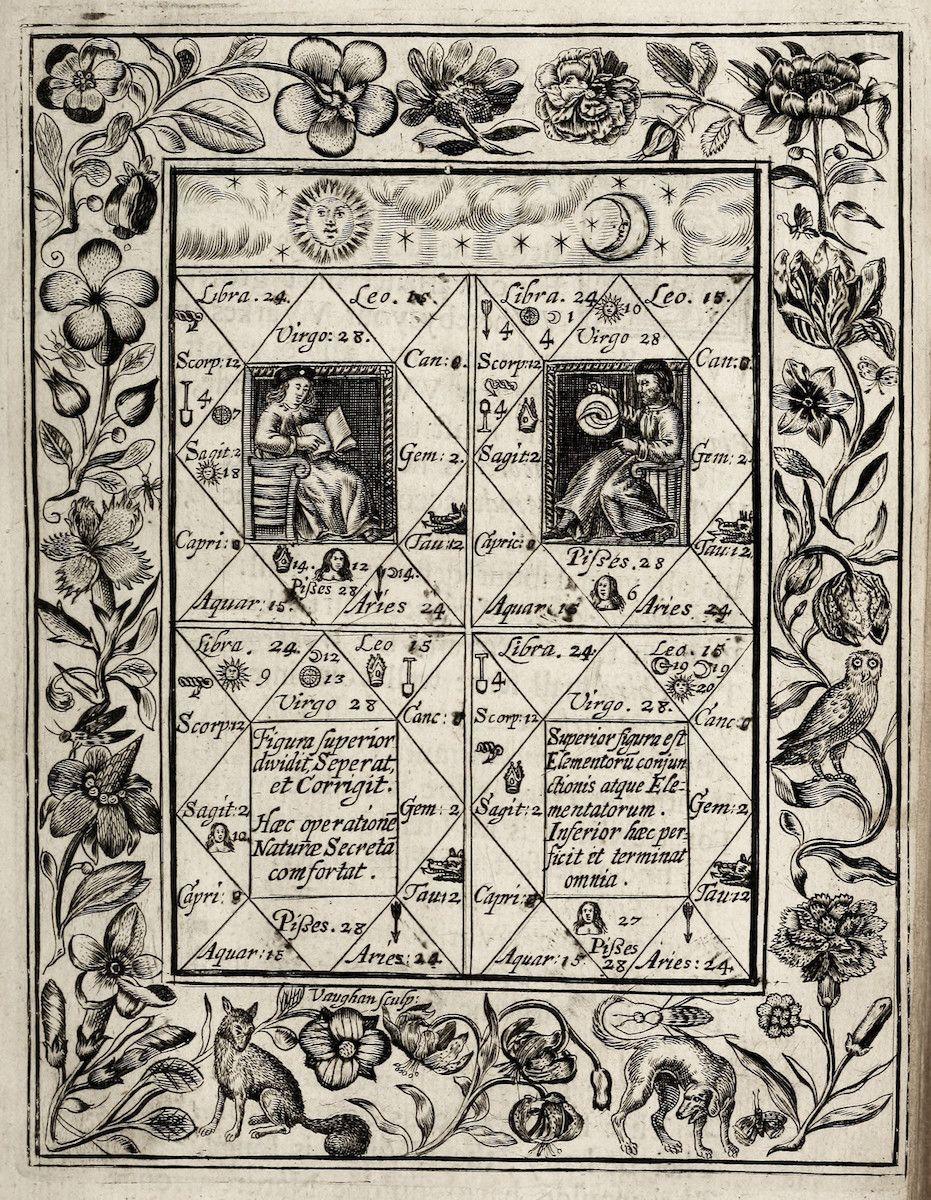 Libra. 24. Leo. 15.
Virgo: 28.
Scorp: 12 Can: 0.
4 7
Sagit: 2 Gem: 2.
18
Capri: 0 Tau: 12
14. 12 14.
Pisses 28
Aquar: 15. Aries 24
Libra. 24 Leo. 15.
4 4 1 10
Virgo 28
Scorp: 12 Can: 0
4
Sagit: 2 Gem: 2
Capric: 0 Tau: 12.
Pisses. 28
6
Aquar: 15 Aries 24
Libra. 24. Leo 15
9 12
13
Virgo 28
Scorp 12 Canc: 0
Figura superior
dividit, Seperat,
et Corrigit.
Hæc operatione
Naturæ Secreta
comfortat.
Sagit: 2 Gem: 2
10
Capri: 0 Tau: 12
Pisses. 28
Aquar: 15 Aries: 24
Libra. 24. Leo. 15
4 19 19
20
Virgo. 28.
Scorp: 12 Canc: 0
Superior figura est
Elementorū conjun
ctionis atque Ele-
mentatorum.
Inferior hæc per-
ficit et terminat
omnia.
Sagit: 2 Gem: 2
Capri: 0 Tau: 12
27
Pisses
28
Aquar: 15 Aries: 24.
Vaughan sculp: